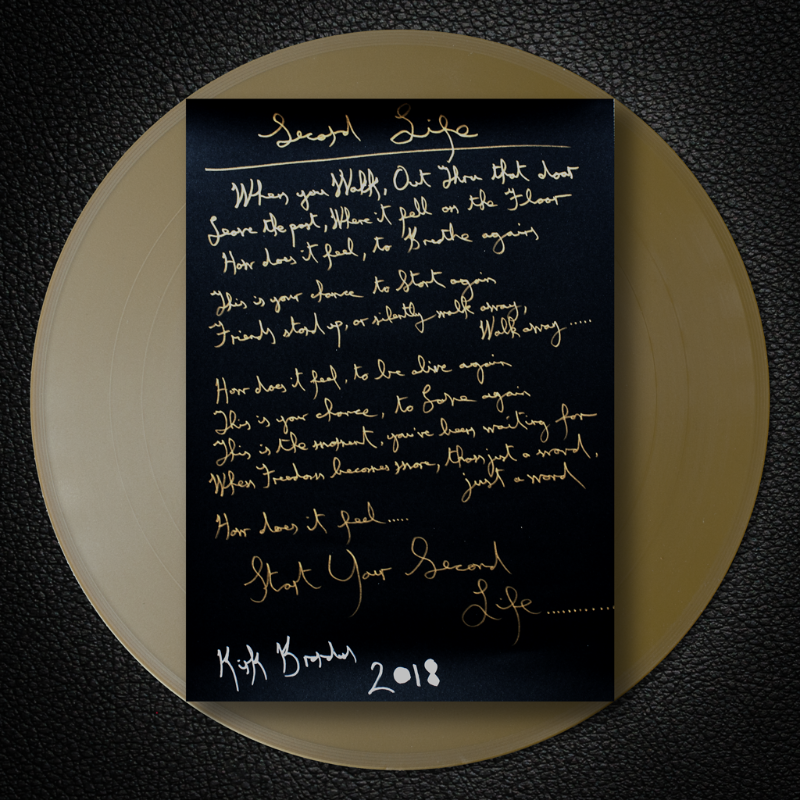 Second Life
When you Walk, Out Thru that door
Leave the past, Where it fell on the Floor
How does it feel, to Breathe again
This is your chance to Start again
Friends stand up, or silently walk away,
Walk away .....
How does it feel, to be alive again
This is your chance, to Love again
This is the moment, you've been waiting for
When Freedom becomes more, than just a word,
just a word
How does it feel.....
Start Your Second
Life ..........
Kirk Brandon
2018